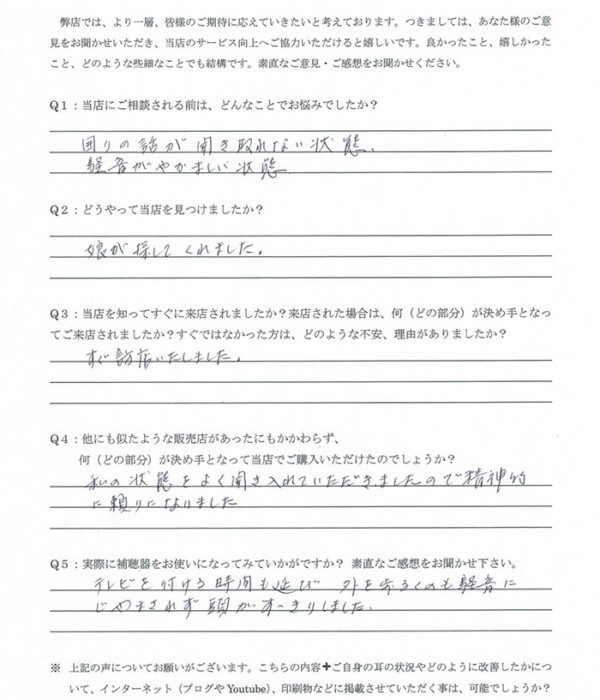 弊店では、より一層、皆様のご期待に応えていきたいと考えております。つきましては、あなた様のご意
見をお聞かせいただき、当店のサービス向上へご協力いただけると嬉しいです。良かったこと、嬉しかった
こと、どのような些細なことでも結構です。素直なご意見・ご感想をお聞かせください。
Q1：当店にご相談される前は、どんなことでお悩みでしたか？
困りの話が聞き取れない状態、
騒音がやかましい状態
Q2：どうやって当店を見つけましたか？
娘が探してくれました。
Q3：当店を知ってすぐに来店されましたか？来店された場合は、何（どの部分）が決め手となっ
てご来店されましたか？すぐではなかった方は、どのような不安、理由がありましたか？
すぐ訪店いたしました。
Q4：他にも似たような販売店があったにもかかわらず、
何（どの部分）が決め手となって当店でご購入いただけたのでしょうか？
私の状態をよく聞き入れていただきましたので精神的
に頼りになりました
Q5：実際に補聴器をお使いになってみていかがですか？ 素直なご感想をお聞かせ下さい。
テレビを付ける時間も延び 外を歩くのも騒音に
じゃまされず頭がすっきりしました。
※ 上記の声についてお願いがございます。こちらの内容＋ご自身の耳の状況やどのように改善したかにつ
いて、インターネット（ブログや Youtube）、印刷物などに掲載させていただく事は、可能でしょうか？